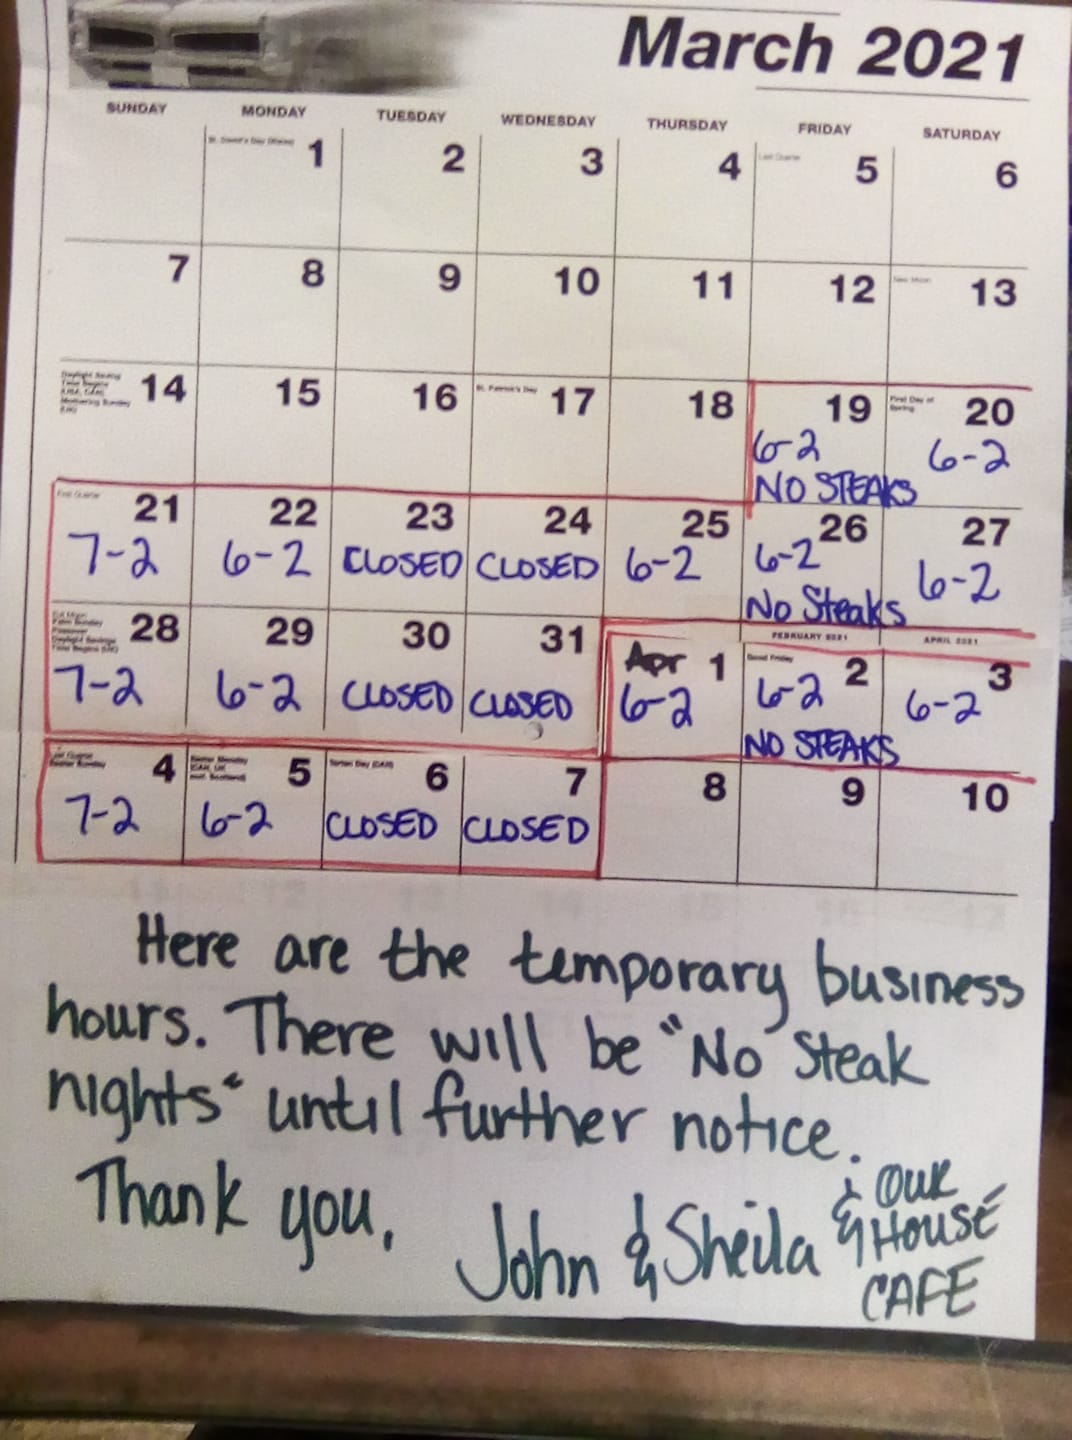 March 2021
SUNDAY MONDAY TUESDAY WEDNESDAY THURSDAY FRIDAY SATURDAY
St. David's Day (Wales) 1 2 3 4 Last Quarter 5 6
7 8 9 10 11 12 New Moon 13
Daylight Saving
Time Begins
(USA, CAN)
Mothering Sunday
(UK)
14 15 16 St. Patrick's Day 17 18 19 First Day of
Spring 20
6-2 6-2
NO STEAKS
First Quarter 21 22 23 24 25 26 27
7-2 6-2 CLOSED CLOSED 6-2 6-2 6-2
No Steaks
Full Moon
Palm Sunday
Passover
Daylight Savings
Time Begins (UK)
28 29 30 31
7-2 6-2 CLOSED CLOSED
FEBRUARY 2021 APRIL 2021
Apr 1 Good Friday 2 3
6-2 6-2 6-2
NO STEAKS
Last Quarter
Easter Sunday 4 Easter Monday
(CAN, UK
except Scotland) 5 Tartan Day (CAN) 6 7 8 9 10
7-2 6-2 CLOSED CLOSED
Here are the temporary business
hours. There will be "No Steak
nights" until further notice.
Thank you,
John & Sheila & OUR
HOUSE
CAFE